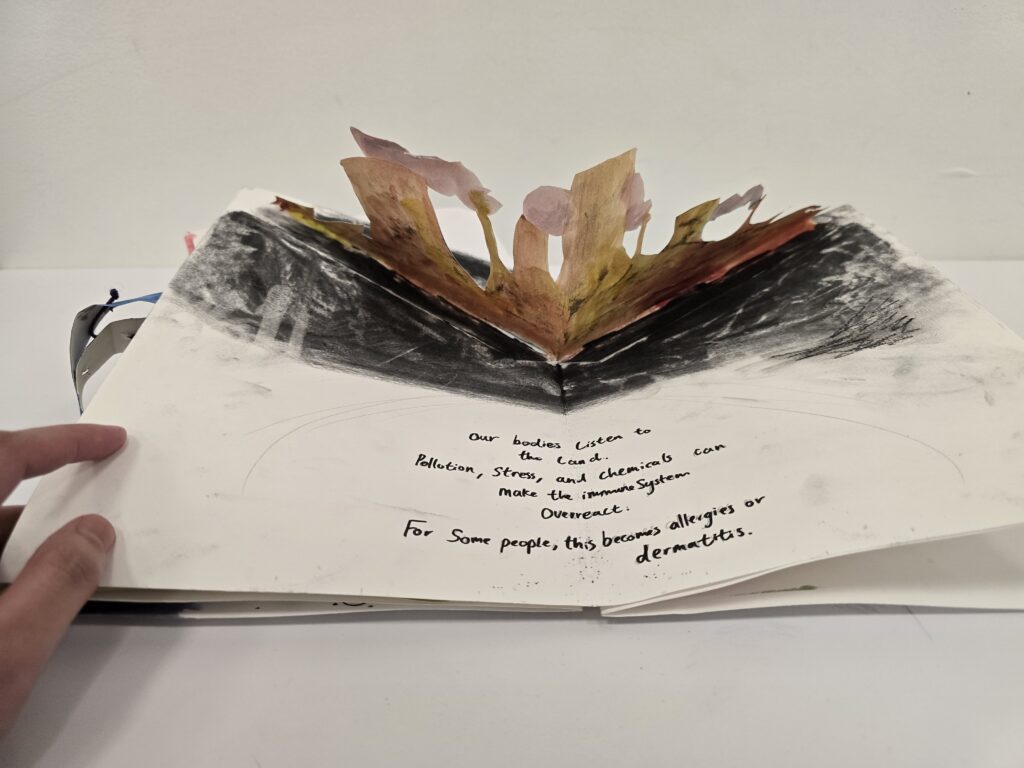 Our bodies Listen to
the Land.
Pollution, Stress, and chemicals can
make the immune System
Overreact.
For Some people, this becomes allergies or
dermatitis.